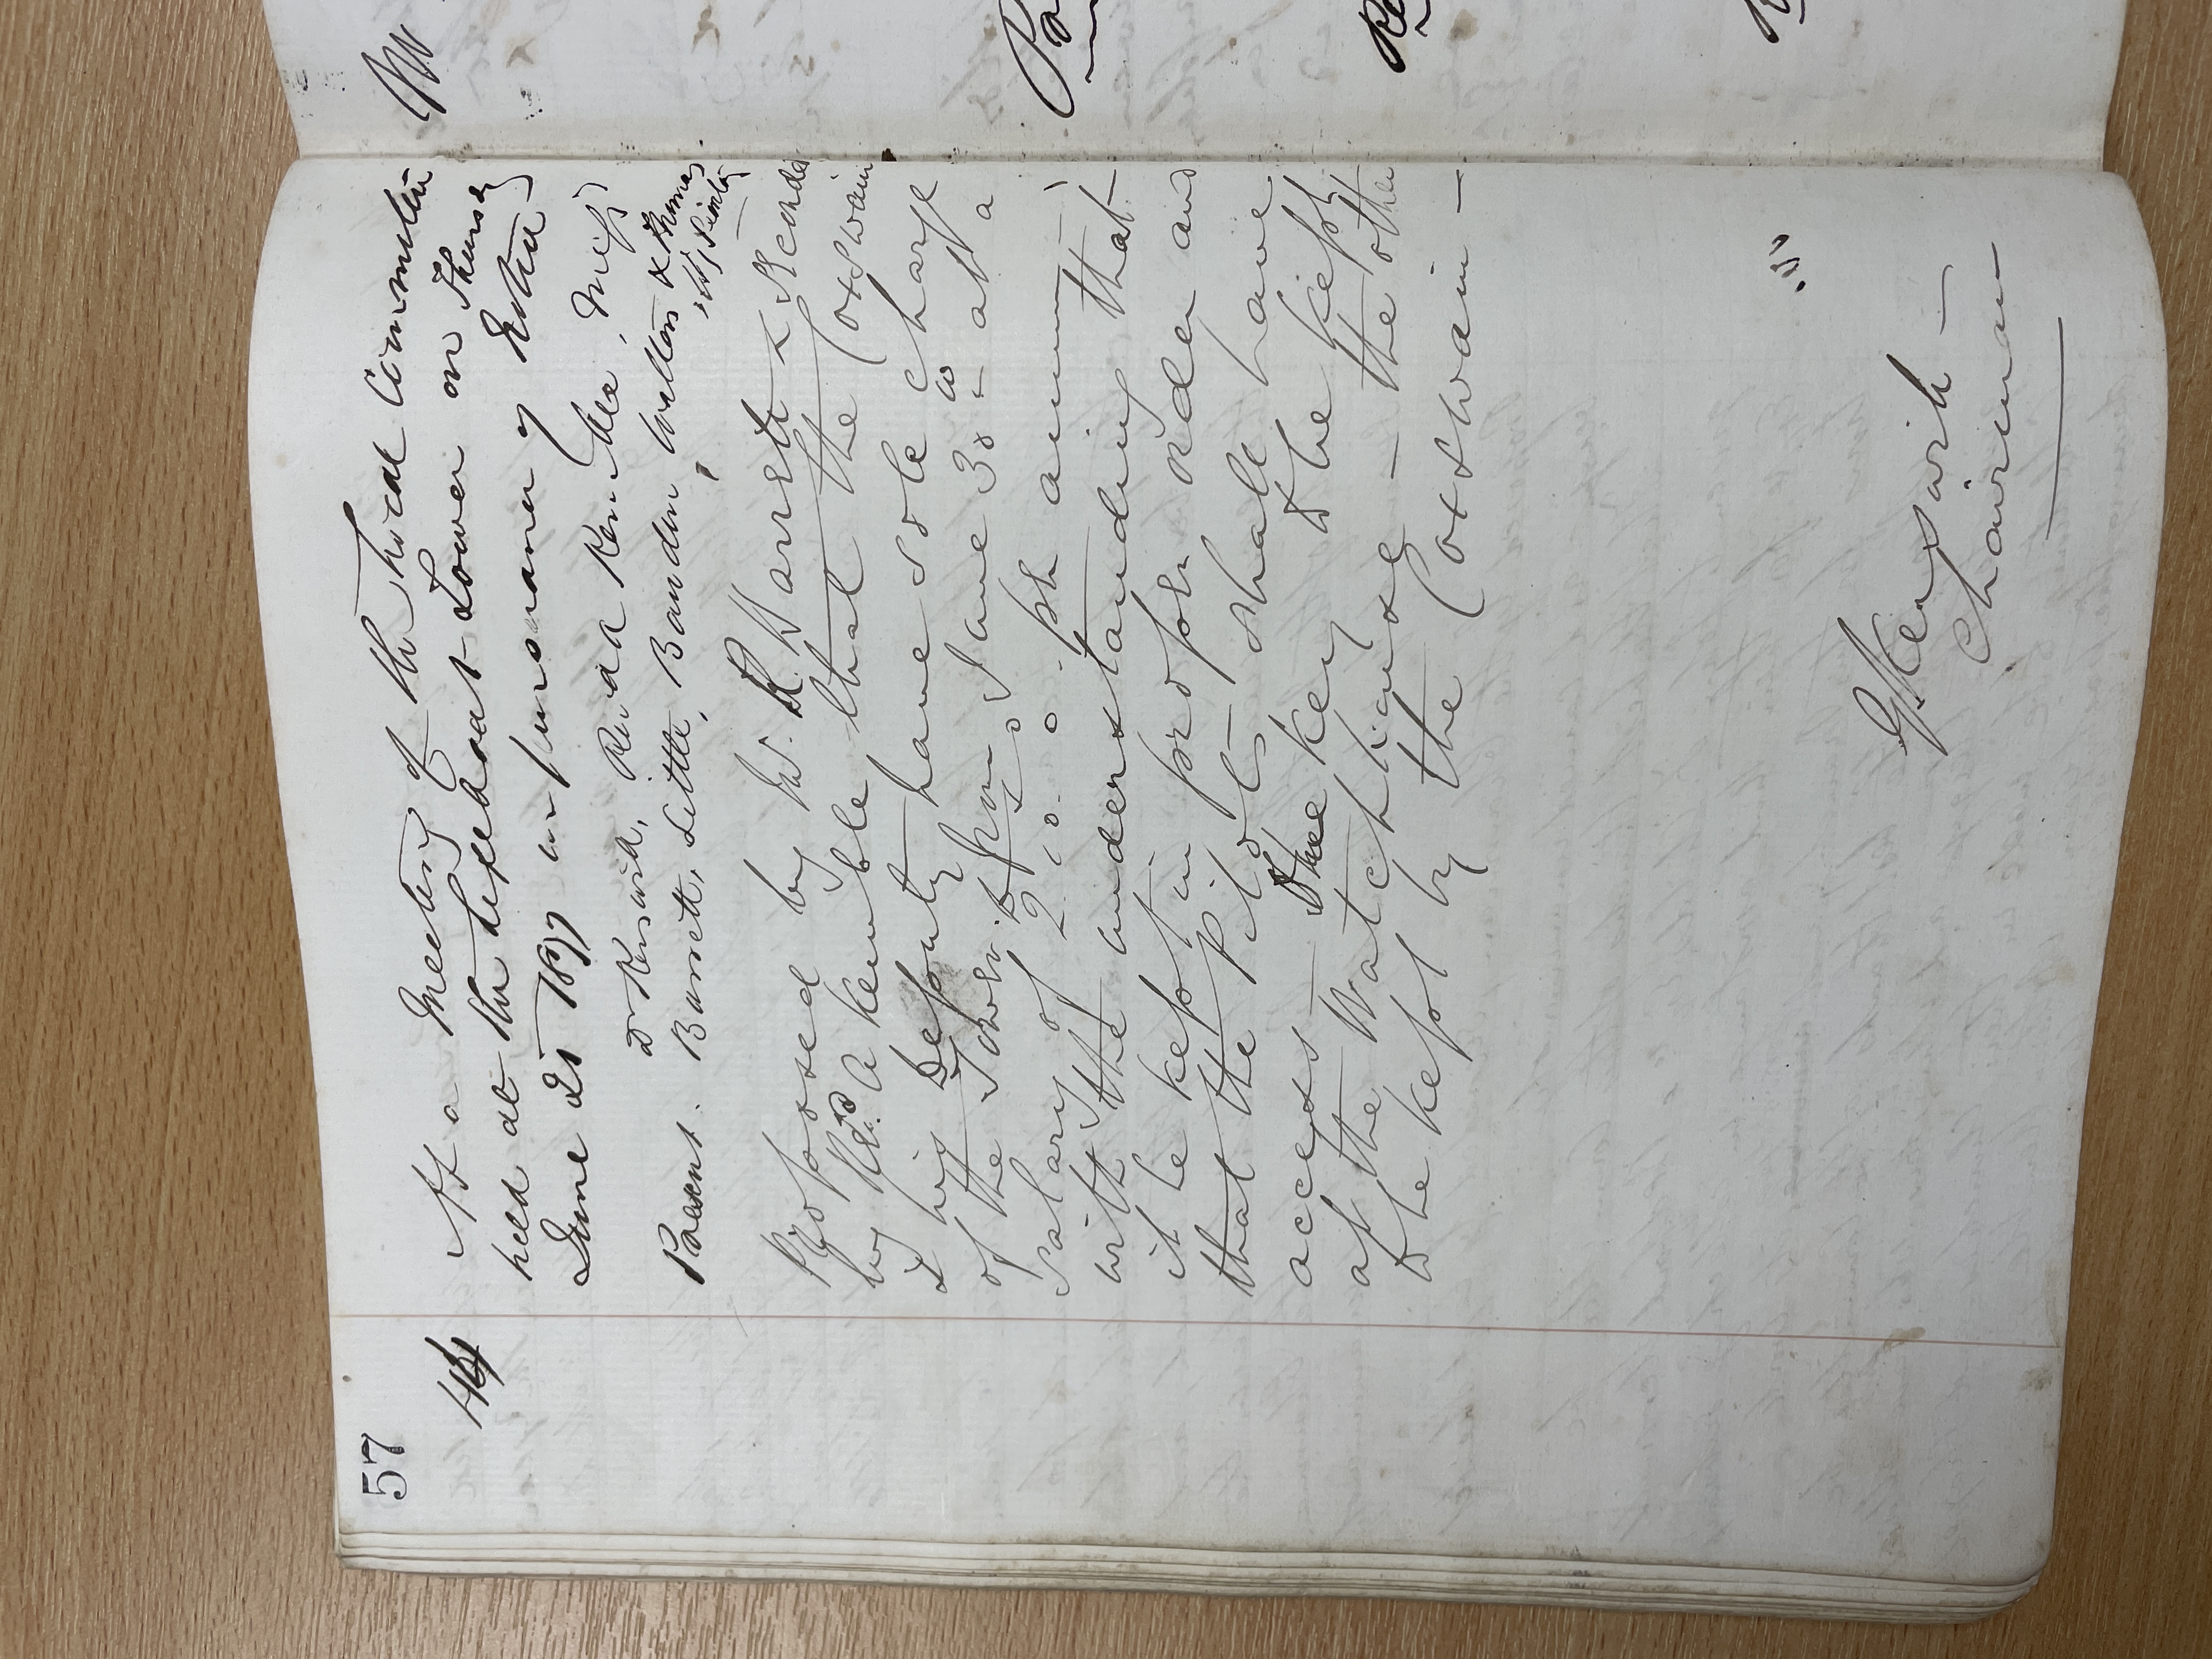 57
At a Meeting of the Local Committee
held at the Lifeboat Tower on Thursday
June 21st 1877 in pursuance of Notice
Present. Dr Kenwith, Revd A Kemble, Messrs
Barrett, Little, Bandin, Walton & Thomas
Proposed by Mr. R Barrett & Seconded
by Revd. A Kemble that the Coxswain
& his Deputy have sole charge
of the Tower from June 30 at a
salary of 2. 0. 0. per annum
with the understanding that
it be kept in proper order and
that the Pilots shall have
access – One key to be kept
at the Watchhouse – the other
to be kept by the Coxswain –
Chairman